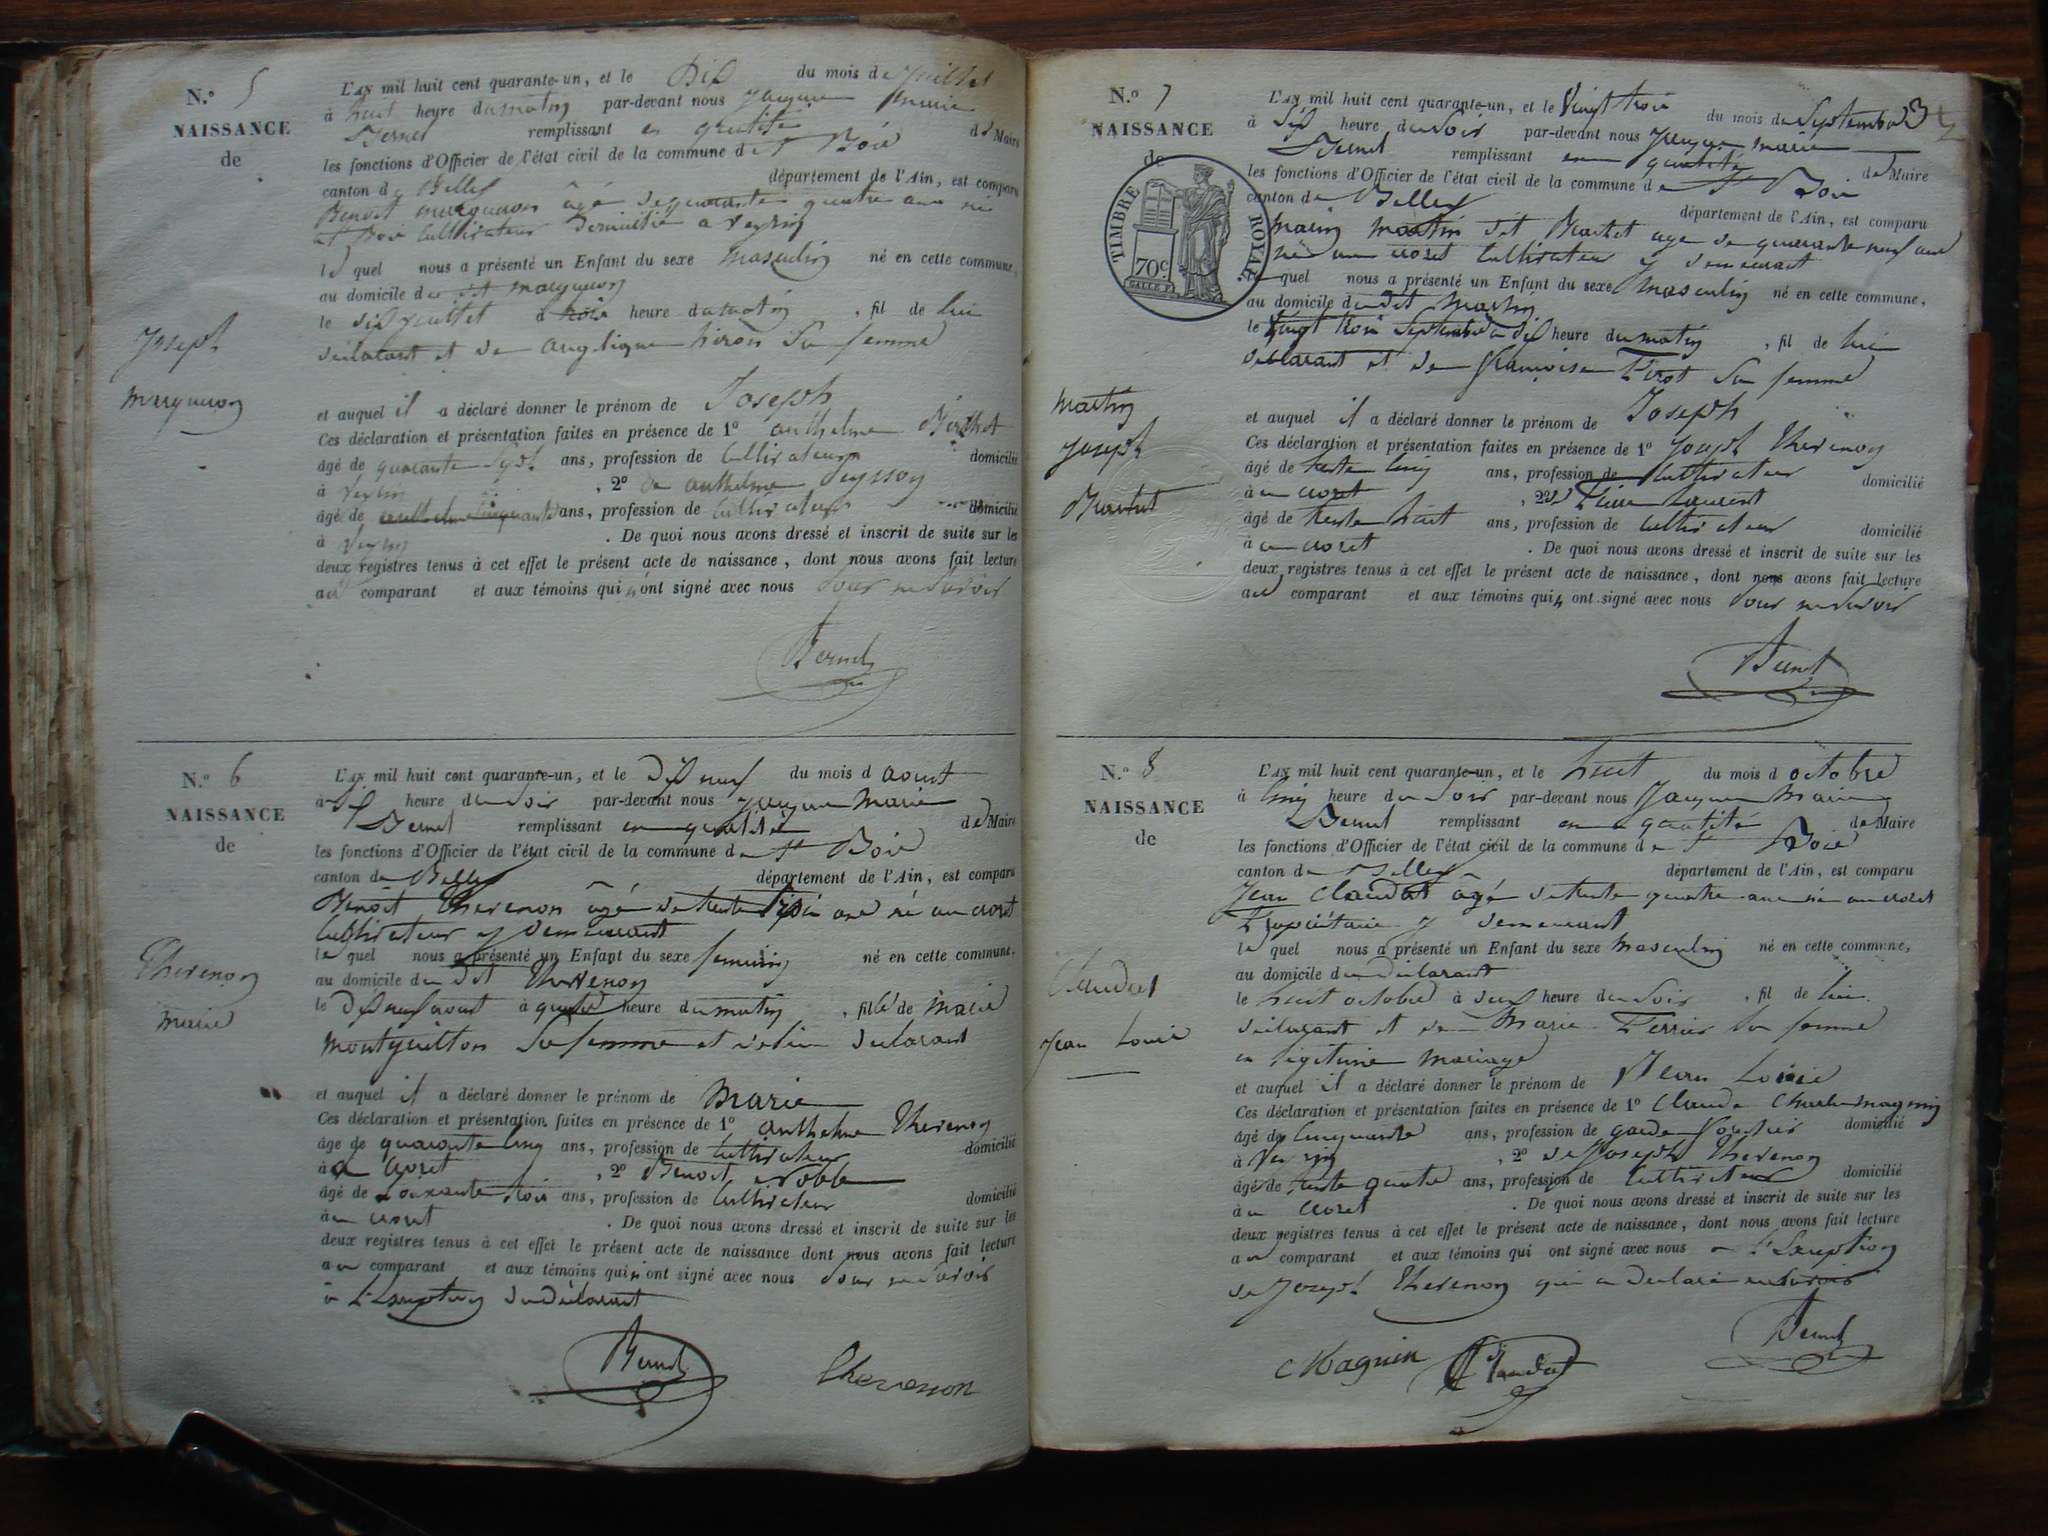 N.º 5
NAISSANCE
de
Joseph
L'AN mil huit cent quarante-un, et le Dix du mois de Juillet
à huit heure du matin par-devant nous Jacques Marie
Bernet remplissant en qualité de Maire
les fonctions d'Officier de l'état civil de la commune de St Bois
canton de Belley département de l'Ain, est comparu
Benoit âgé de quarante quatre ans né
à St Bois Cultivateur Domicilié a Veyrin
le quel nous a présenté un Enfant du sexe Masculin né en cette commune,
au domicile du dit
le dix Juillet à trois heure du matin, fil de lui
déclarant et de angelique sa femme
et auquel il a déclaré donner le prénom de Joseph
Ces déclaration et présentation faites en présence de 1º anthelme
âgé de quarante Sept ans, profession de Cultivateur domicilié
à Veyrin, 2º de anthelme Peysson
âgé de cinquante ans, profession de Cultivateur domicilié
à Veyrin. De quoi nous avons dressé et inscrit de suite sur les
deux registres tenus à cet effet le présent acte de naissance, dont nous avons fait lecture
au comparant et aux témoins qui n'ont signé avec nous pour ne savoir
Bernet
N.º 6
NAISSANCE
de
Thevenon
Marie
L'AN mil huit cent quarante-un, et le Dix neuf du mois d aoust
à Six heure du Soir par-devant nous Jacques Marie
Bernet remplissant en qualité de Maire
les fonctions d'Officier de l'état civil de la commune de St Bois
canton de Belley département de l'Ain, est comparu
Benoit Thevenon âgé de trente trois ans né au croset
Cultivateur y demeurant
le quel nous a présenté un Enfant du sexe feminin né en cette commune,
au domicile du dit Thevenon
le Dix neuf aoust à quatre heure du matin, fille de Marie
Montguillon Sa femme et de lui declarant
et auquel il a déclaré donner le prénom de Marie
Ces déclaration et présentation faites en présence de 1º anthelme Thevenon
âgé de quarante cinq ans, profession de Cultivateur domicilié
à a croset, 2º Benoit
âgé de soixante trois ans, profession de Cultivateur domicilié
à u croset. De quoi nous avons dressé et inscrit de suite sur les
deux registres tenus à cet effet le présent acte de naissance dont nous avons fait lecture
au comparant et aux témoins qui n'ont signé avec nous pour ne savoir
a L'Exception du déclarant
Bernet Thevenon
N.º 7
NAISSANCE
de
TIMBRE ROYAL
70 c
Martin
Joseph
L'AN mil huit cent quarante-un, et le Vingt trois du mois de Septembre
à Six heure du Soir par-devant nous Jacques Marie
Bernet remplissant en qualité de Maire
les fonctions d'Officier de l'état civil de la commune de St Bois
canton de Belley département de l'Ain, est comparu
Marin Martin dit age de quarante neuf ans
né au croset Cultivateur y demeurant
le quel nous a présenté un Enfant du sexe Masculin né en cette commune,
au domicile du dit Martin
le Vingt trois Septembre à Six heure du matin, fil de lui
declarant et de françoise sa femme
et auquel il a déclaré donner le prénom de Joseph
Ces déclaration et présentation faites en présence de 1º Joseph Thevenon
âgé de trente cinq ans, profession de Cultivateur domicilié
à u croset, 2º de Pierre Laurent
âgé de trente huit ans, profession de Cultivateur domicilié
à u croset. De quoi nous avons dressé et inscrit de suite sur les
deux registres tenus à cet effet le présent acte de naissance, dont nous avons fait lecture
au comparant et aux témoins qui n ont signé avec nous pour ne savoir
Bernet
N.º 8
NAISSANCE
de
Claudat
Jean Louis
L'AN mil huit cent quarante-un, et le huit du mois d octobre
à cinq heure du Soir par-devant nous Jacques Marie
Bernet remplissant en qualité de Maire
les fonctions d'Officier de l'état civil de la commune de St Bois
canton de Belley département de l'Ain, est comparu
Jean Claudat âgé de trente quatre ans né au croset
Propriétaire y demeurant
le quel nous a présenté un Enfant du sexe Masculin né en cette commune,
au domicile du déclarant
le huit octobre à heure du Soir, fil de lui
déclarant et de Marie Perrier sa femme
en légitime mariage
et auquel il a déclaré donner le prénom de Jean Louis
Ces déclaration et présentation faites en présence de 1º Claude Charle magnin
âgé de Cinquante ans, profession de garde forestier domicilié
à Veyrin, 2º de Joseph Thevenon
âgé de trente quatre ans, profession de Cultivateur domicilié
à u croset. De quoi nous avons dressé et inscrit de suite sur les
deux registres tenus à cet effet le présent acte de naissance, dont nous avons fait lecture
au comparant et aux témoins qui ont signé avec nous a L'Exception
de Joseph Thevenon qui a déclaré ne savoir
C Magnin Claudat Bernet